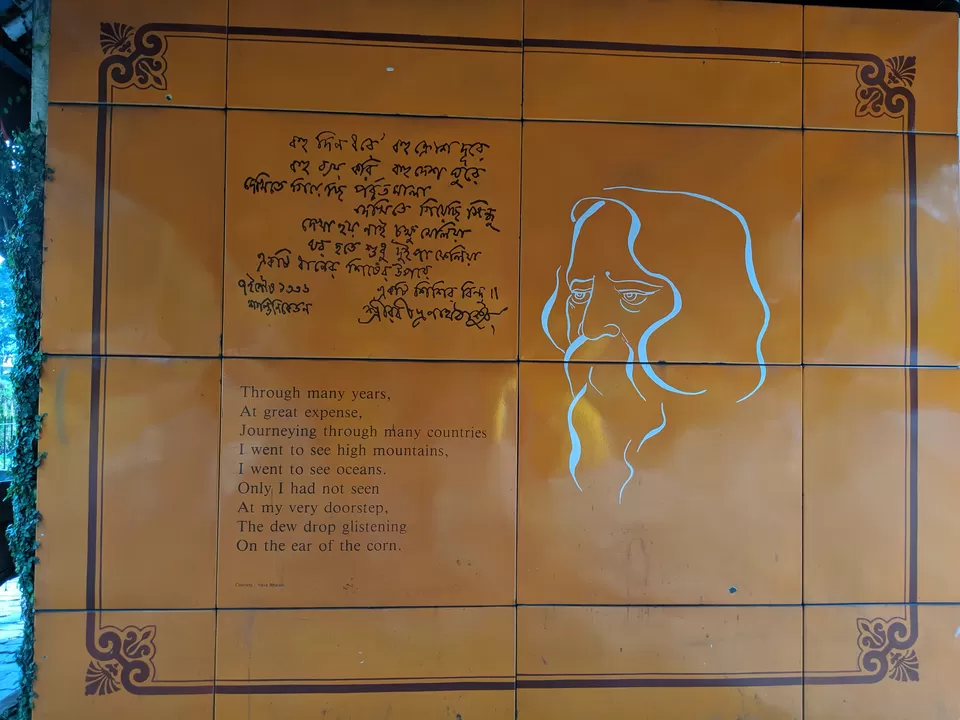 বহু দিন ধরে' বহু ক্রোশ দূরে
বহু ব্যয় করি বহু দেশ ঘুরে
দেখিতে গিয়েছি পর্ব্বতমালা
দেখিতে গিয়েছি সিন্ধু
দেখা হয় নাই চক্ষু মেলিয়া
ঘর হতে শুধু দুই পা ফেলিয়া
একটি ধানের শিষের উপরে
একটি শিশির বিন্দু॥
৭ই পৌষ ১৩৩৬
শান্তিনিকেতন
শ্রীরবীন্দ্রনাথ ঠাকুর
Through many years,
At great expense,
Journeying through many countries
I went to see high mountains,
I went to see oceans.
Only I had not seen
At my very doorstep,
The dew drop glistening
On the ear of the corn.